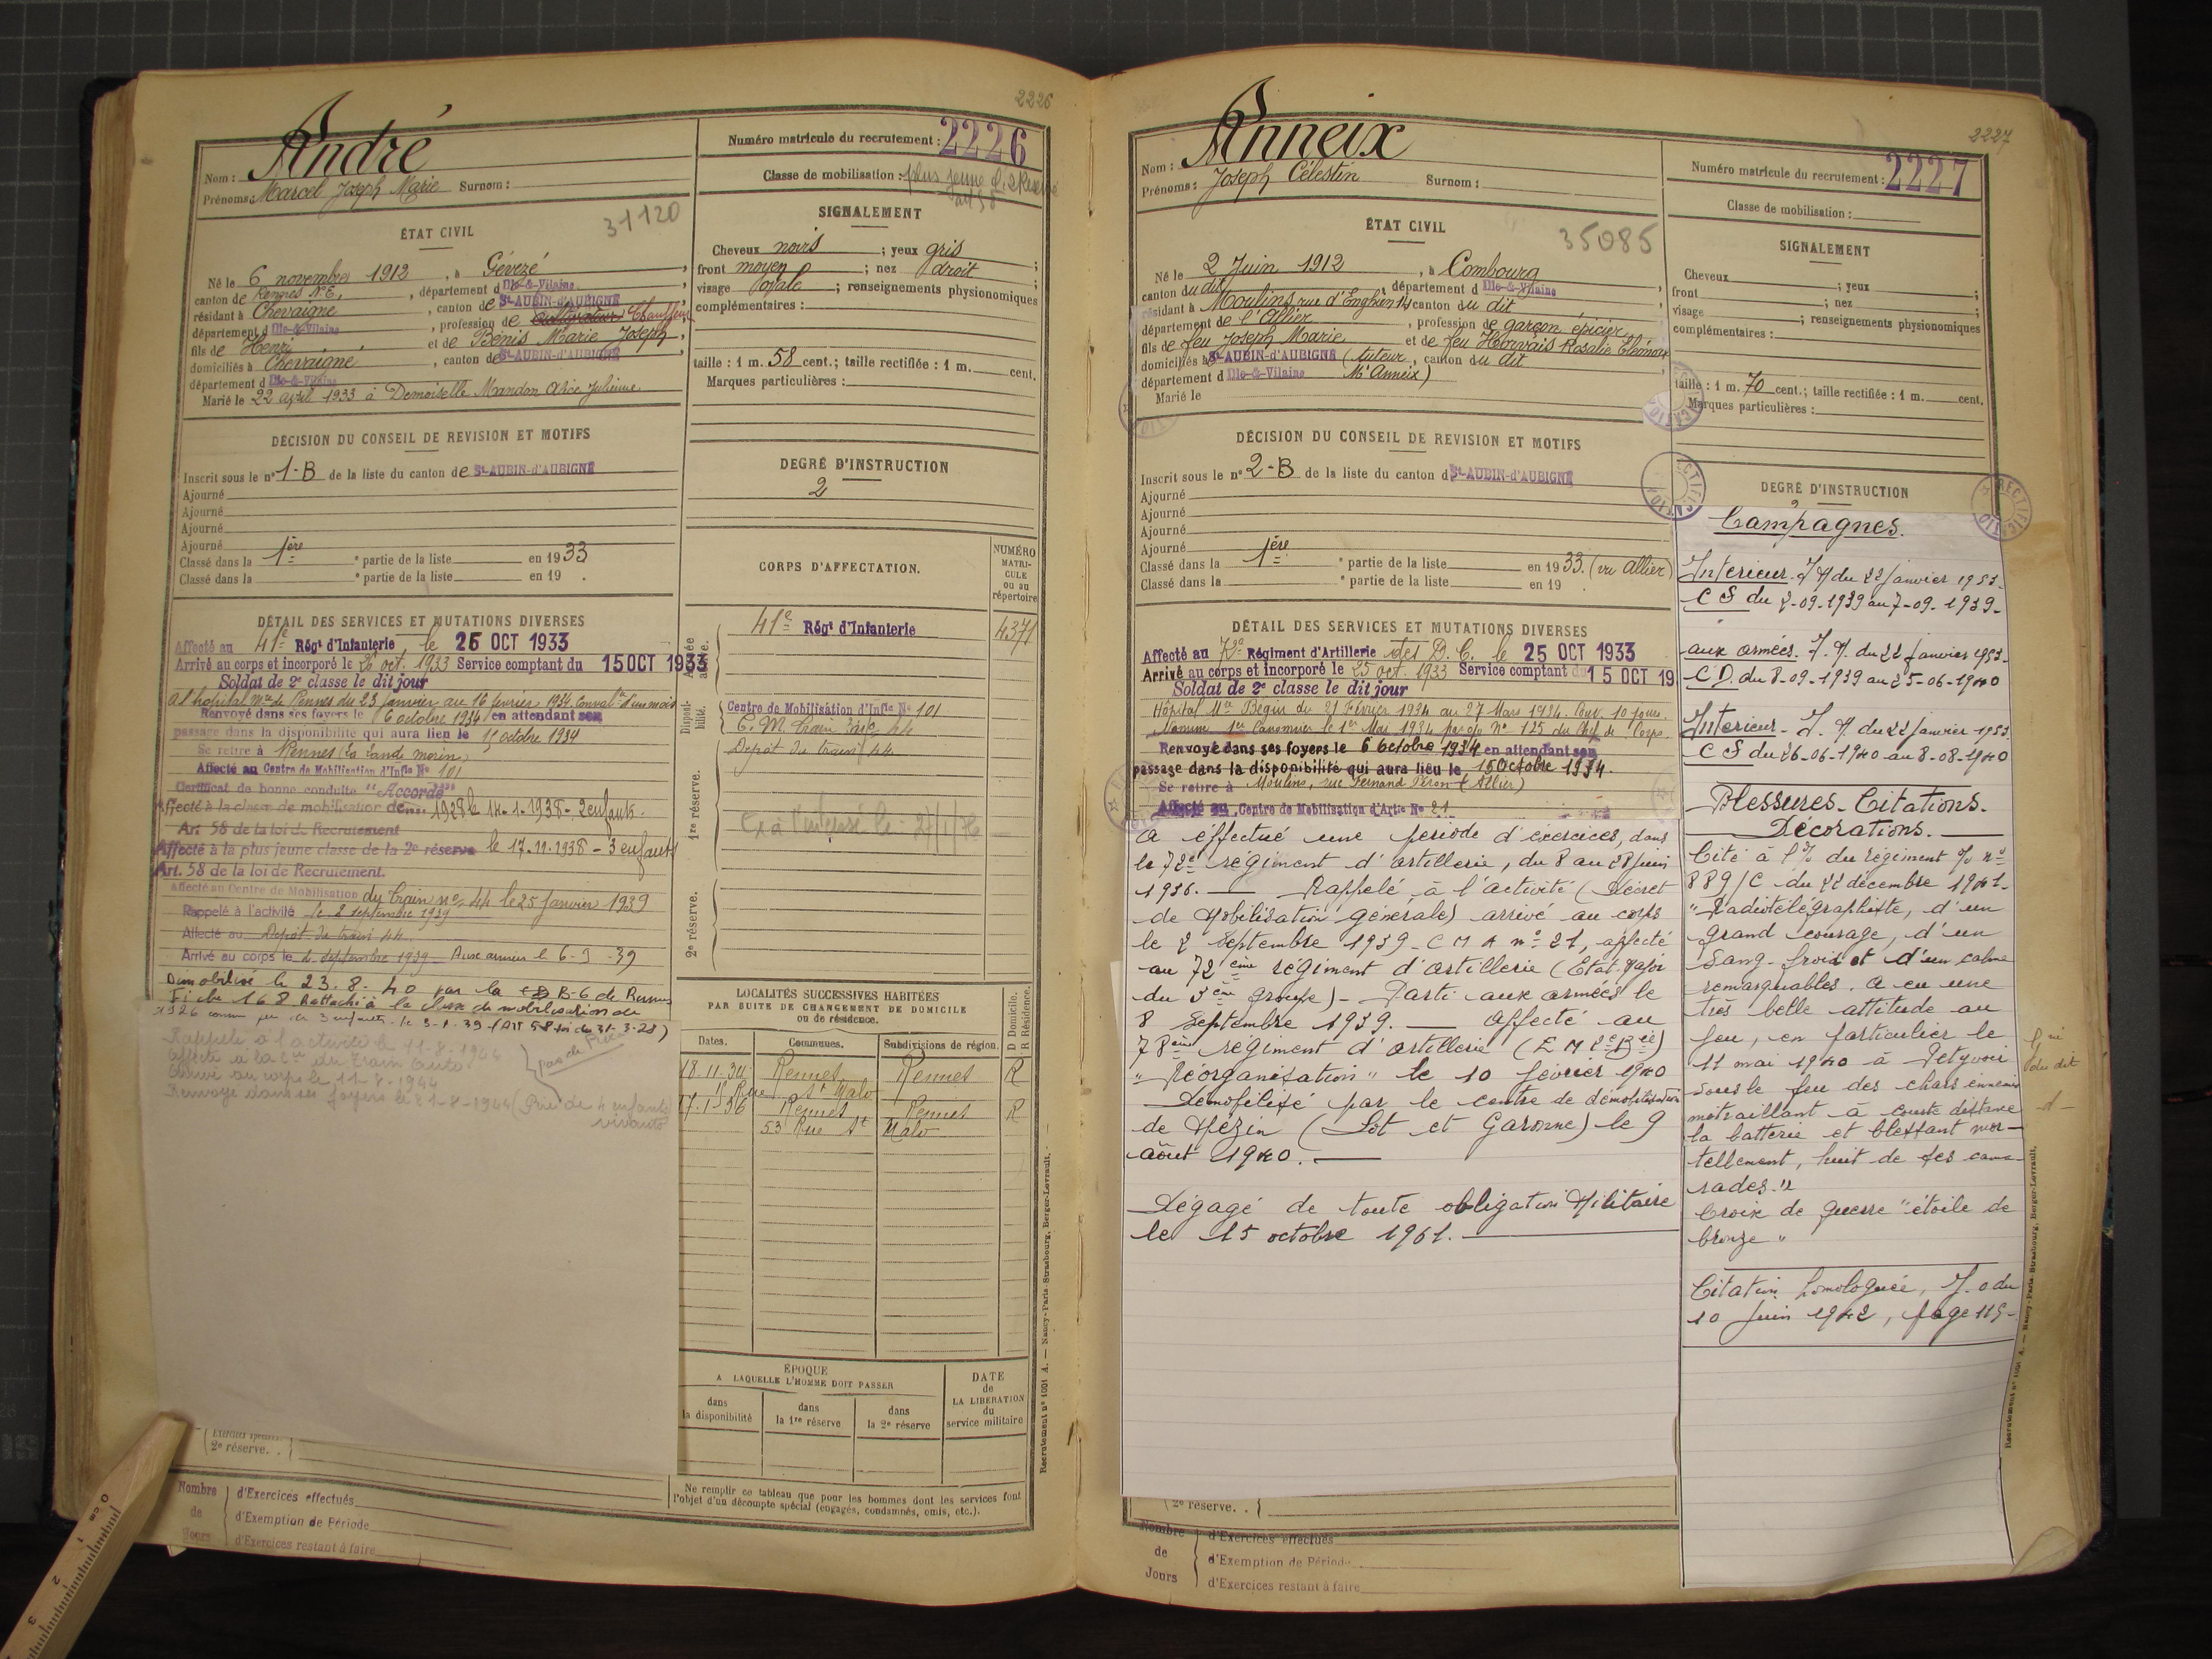 2226
Nom : André
Prénoms : Marcel Joseph Marie Surnom :
31120
ÉTAT CIVIL
Né le 6 novembre 1912, à Gévezé,
canton de Rennes N.E., département d Ille-&-Vilaine
résidant à Chevaigné, canton de St-AUBIN-d'AUBIGNÉ
département d Ille-&-Vilaine, profession de cultivateur Chauffeur
fils de Henri et de Bénis Marie Joseph
domiciliés à Chevaigné, canton de St-AUBIN-d'AUBIGNÉ
département d Ille-&-Vilaine
Marié le 22 avril 1933 à Demoiselle Mandon Alice Julienne
DÉCISION DU CONSEIL DE REVISION ET MOTIFS
Inscrit sous le n° 1-B de la liste du canton de St-AUBIN-d'AUBIGNÉ
Ajourné
Ajourné
Ajourné
Ajourné
Classé dans la 1ère partie de la liste en 1933
Classé dans la partie de la liste en 19 .
DÉTAIL DES SERVICES ET MUTATIONS DIVERSES
Affecté au 41e Régt d'Infanterie, le 25 OCT 1933
Arrivé au corps et incorporé le 26 oct. 1933 Service comptant du 15 OCT 1933
Soldat de 2e classe le dit jour
à l'hôpital Mre de Rennes du 23 janvier au 16 février 1934 Conval. d'un mois
Renvoyé dans ses foyers le 6 octobre 1934 en attendant son
passage dans la disponibilité qui aura lieu le 15 octobre 1934
Se retire à Rennes (La Lande morin)
Affecté au Centre de Mobilisation d'Infie N° 101
Certificat de bonne conduite "Accordé"
Affecté à la classe de mobilisation de 1928 le 14-1-1938 - 2 enfants.
Art. 58 de la loi de Recrutement
Affecté à la plus jeune classe de la 2e réserve le 17.11.1938 - 3 enfants
Art. 58 de la loi de Recrutement.
Affecté au Centre de Mobilisation du Train n° 44 le 25 janvier 1939
Rappelé à l'activité le 2 septembre 1939
Affecté au Dépôt du train 44
Arrivé au corps le 2 septembre 1939 Aux armées le 6-9-39
Démobilisé le 23.8.40 par la B-6 de Rennes
Fiche 168 Rattaché à la classe de mobilisation de
1926 comme père de 3 enfants le 3-1-39 (Art 58 loi du 31-3-28)
Rappelé à l'activité le 11-8-1944
Affecté à la Cie du Train Auto
Arrivé au corps le 11-8-1944
Renvoyé dans ses foyers le 21-8-1944 (Père de 4 enfants
vivants)
pas de pièces
2e réserve. .
Nombre de Jours
d'Exercices effectués
d'Exemption de Période
d'Exercices restant à faire
Numéro matricule du recrutement : 2226
Classe de mobilisation : plus jeune cl. 2e Réserve
art 58
SIGNALEMENT
Cheveux noirs ; yeux gris ;
front moyen ; nez droit ;
visage ovale ; renseignements physionomiques
complémentaires :
taille : 1 m. 58 cent.; taille rectifiée : 1 m. cent.
Marques particulières :
DEGRÉ D'INSTRUCTION
2
CORPS D'AFFECTATION.
NUMÉRO MATRICULE ou au répertoire
Armée active.
41e Régt d'Infanterie 4371
Disponibilité.
Centre de Mobilisation d'Infie N° 101
C. M. Train 44
Dépôt du train 44
1re réserve.
2e réserve.
LOCALITÉS SUCCESSIVES HABITÉES
PAR SUITE DE CHANGEMENT DE DOMICILE
ou de résidence.
D Domicile. R Résidence.
Dates. Communes. Subdivisions de région.
18-11-34 Rennes Rennes R
Rue St Malo
17-1-36 Rennes Rennes R
53 Rue St Malo
ÉPOQUE
A LAQUELLE L'HOMME DOIT PASSER
dans la disponibilité
dans la 1re réserve
dans la 2e réserve
DATE de LA LIBÉRATION du service militaire
Ne remplir ce tableau que pour les hommes dont les services font
l'objet d'un décompte spécial (engagés, condamnés, omis, etc.).
Recrutement n° 1001 A. — Nancy-Paris-Strasbourg, Berger-Levrault.
2227
Nom : Anneix
Prénoms : Joseph Célestin Surnom :
35085
ÉTAT CIVIL
Né le 2 Juin 1912, à Combourg
canton du dit, département d Ille-&-Vilaine
résidant à Moulins, rue d'Enghien 14, canton du dit
département de l'Allier, profession de garçon épicier
fils de feu Joseph Marie et de feu Horvais Rosalie Eléonore
domiciliés à St-AUBIN-d'AUBIGNÉ (tuteur, canton du dit
département d Ille-&-Vilaine Mr Anneix)
Marié le
DÉCISION DU CONSEIL DE REVISION ET MOTIFS
Inscrit sous le n° 2-B de la liste du canton d St-AUBIN-d'AUBIGNÉ
Ajourné
Ajourné
Ajourné
Ajourné
Classé dans la 1ère partie de la liste en 1933. (vu Allier)
Classé dans la partie de la liste en 19 .
DÉTAIL DES SERVICES ET MUTATIONS DIVERSES
Affecté au 72e Régiment d'Artillerie des D. C. le 25 OCT 1933
Arrivé au corps et incorporé le 25 oct. 1933 Service comptant du 15 OCT 19
Soldat de 2e classe le dit jour
Hôpital Mre Bégin du 21 Février 1934 au 27 Mars 1934. Conv. 10 jours.
Nommé 1er Canonnier le 1er Mai 1934 par o/o N° 125 du Chef de Corps.
Renvoyé dans ses foyers le 6 Octobre 1934 en attendant son
passage dans la disponibilité qui aura lieu le 15 Octobre 1934.
Se retire à Moulins, rue Fernand Péron (Allier)
Affecté au Centre de Mobilisation d'Artie N° 21
A effectué une période d'exercices, dans
le 72e régiment d'artillerie, du 8 au 28 juin
1936. — Rappelé à l'activité (Décret
de Mobilisation générale) arrivé au corps
le 2 Septembre 1939 - C M A n° 21, affecté
au 72ème régiment d'artillerie (Etat-Major
du 3ème groupe) - Parti aux armées le
8 Septembre 1939. — Affecté au
78ème régiment d'artillerie (E M 2e Bie)
"Réorganisation" le 10 février 1940
Démobilisé par le centre de démobilisation
de Mézin (Lot et Garonne) le 9
août 1940. —
Dégagé de toute obligation Militaire
le 15 octobre 1961. —
2e réserve. .
Nombre de Jours
d'Exercices effectués
d'Exemption de Période
d'Exercices restant à faire
Numéro matricule du recrutement : 2227
Classe de mobilisation :
SIGNALEMENT
Cheveux ; yeux ;
front ; nez ;
visage ; renseignements physionomiques
complémentaires :
taille : 1 m. 70 cent.; taille rectifiée : 1 m. cent.
Marques particulières :
RECTIFICATIO
DEGRÉ D'INSTRUCTION
2
Campagnes.
Intérieur. I M du 22 janvier 1953.
C S du 2-09-1939 au 7-09-1939-
aux armées. I. M. du 22 janvier 1953.
C D. du 8-09-1939 au 25-06-1940
Intérieur - I. M du 22 janvier 1953.
C S du 26-06-1940 au 8-08-1940
Blessures. Citations.
Décorations.
Cité à l'O/ du régiment o/o n°
889/C du 22 décembre 1941-
"Radiotélégraphiste, d'un
grand courage, d'un
sang-froid et d'un calme
remarquables. A eu une
très belle attitude au
feu, en particulier le
11 mai 1940 à
sous le feu des chars ennemis
mitraillant à courte distance
la batterie et blessant mor-
tellement, huit de ses cama-
rades."
Croix de guerre "étoile de
bronze"
Citation homologuée, J. O du
10 juin 1942, page 115-
du dit
Recrutement n° 1001 A. — Nancy-Paris-Strasbourg, Berger-Levrault.